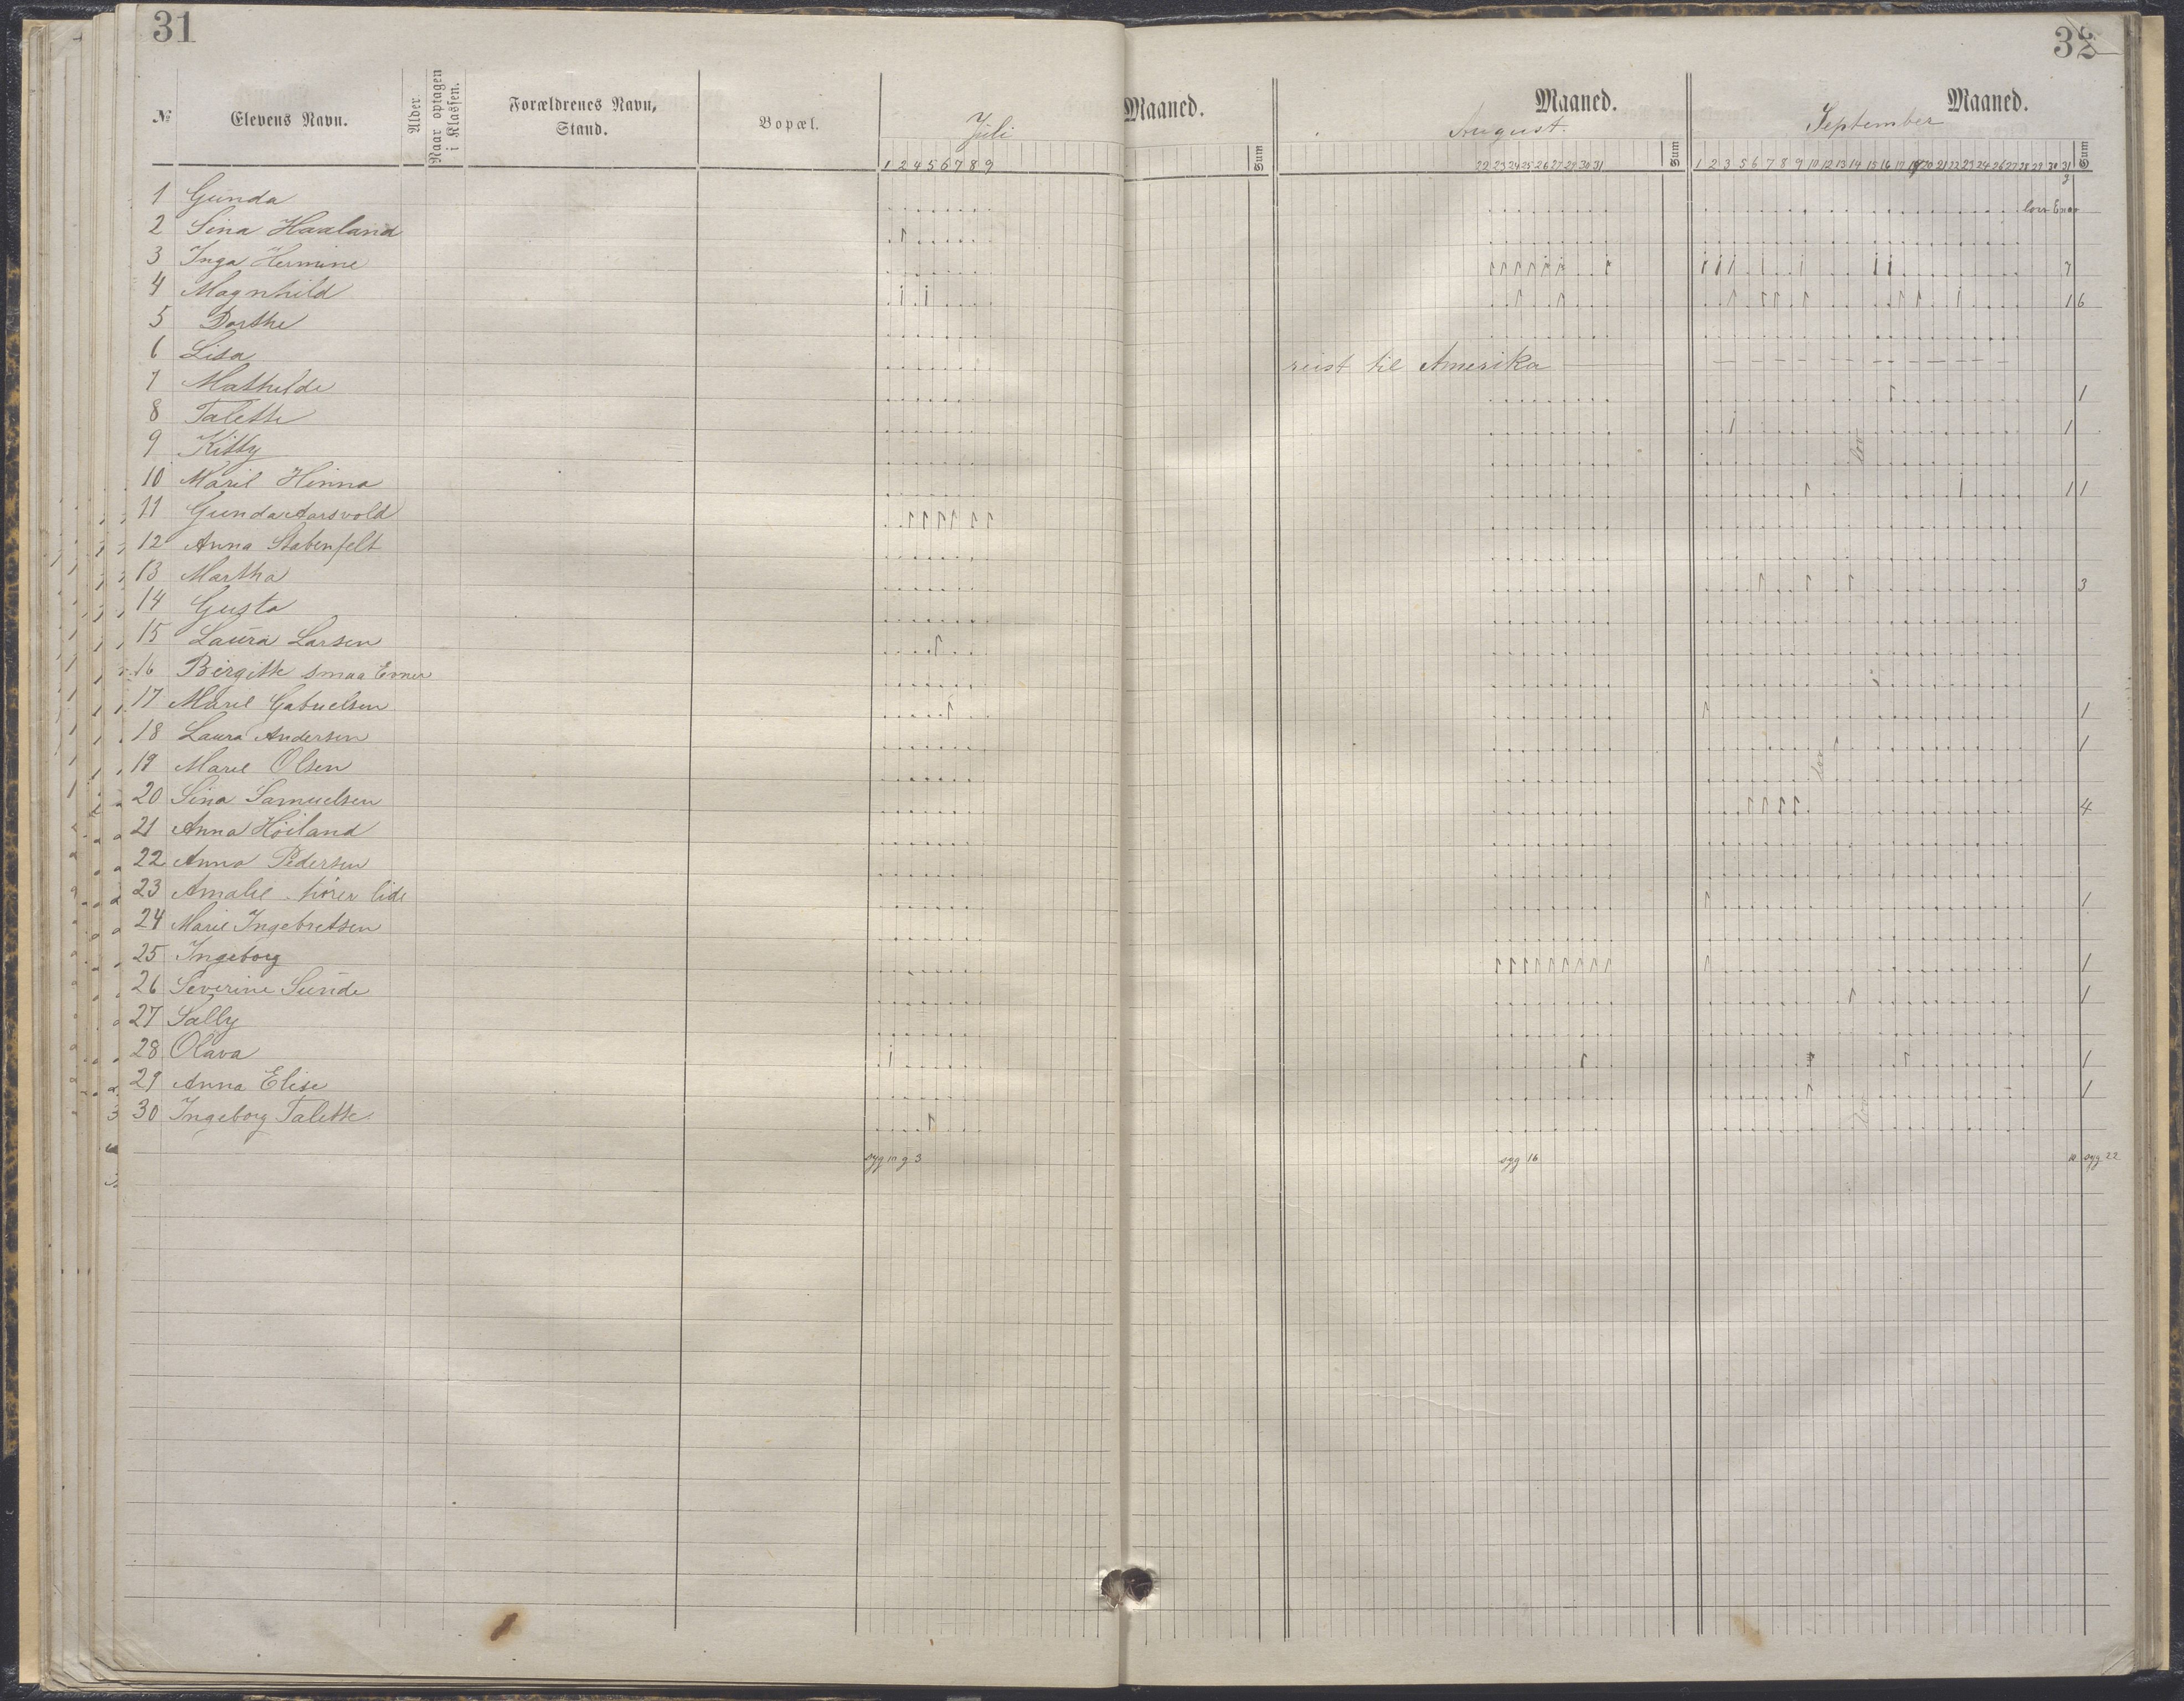 31
32
№ Elevens Navn. Alder. Naar optagen i Klassen. Forældrenes Navn, Stand. Bopæl. Juli Maaned. Sum August. Maaned. Sum September Maaned. Sum
1 2 4 5 6 7 8 9 22 23 24 25 26 27 29 30 31 1 2 3 5 6 7 8 9 10 12 13 14 15 16 17 19 20 21 22 23 24 26 27 28 29 30 31
1 Gunda
2 Sina Haaland
3 Inga Hermine 7
4 Magnhild 1 6
5 Dorthe
6 Lisa reist til Amerika
7 Mathilde 1
8 Talette 1
9 Kitty lov
10 Marie Hinna 1 1
11 Gunda Aarsvold
12 Anna Stabenfelt
13 Martha 3
14 Gusta
15 Laura Larsen
16 Birgitte smaa Evner
17 Marie Gabrielsen 1
18 Laura Andersen 1
19 Marie Olsen lov
20 Sina Samuelsen 4
21 Anna Höiland
22 Anna Pedersen
23 Amalie hörer lide 1
24 Marie Ingebretsen
25 Ingeborg 1
26 Severine Sunde 1
27 Sally
28 Olava 1
29 Anna Elise 1
30 Ingeborg Talette lov
syg 16 syg 22